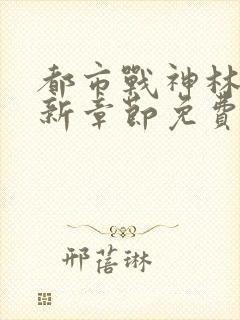 都市戰神林
新章節免費
邢蓓琳